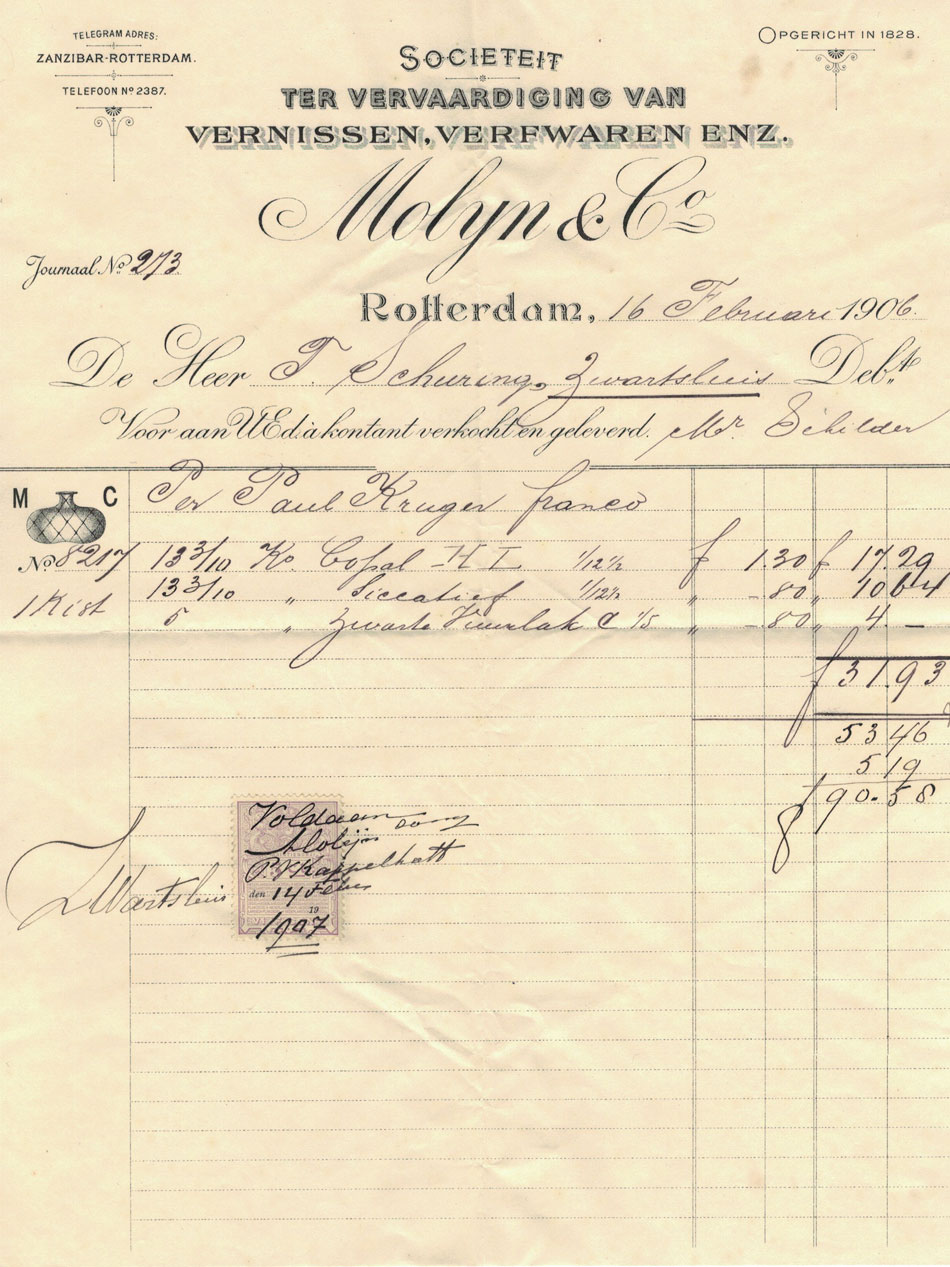 TELEGRAM ADRES:
ZANZIBAR-ROTTERDAM.
TELEFOON No 2387.
OPGERICHT IN 1828.
SOCIETEIT
TER VERVAARDIGING VAN
VERNISSEN, VERFWAREN ENZ.
Molyn & Co
Journaal No. 273
Rotterdam, 16 Februari 1906.
De Heer T. Schuring, Zwartsluis Debt.
Voor aan UEd à kontant verkocht en geleverd. Mr. Schilder
M C
Per Paul Kruger franco
No. 8217 13 3/10 Ko. Copal H I 1/12½ f 1.30 f 17.29
1 Kist 13 3/10 " Siccatief 1/12½ " -.80 " 10 64
5 " Zwarte Vuurlak C 1/5 " -.80 " 4. —
f 31.93
53 46
5 19
f 90.58
Voldaan
Molijn
P. V Kappelhoff
den 14 Febr
19
1907
Zwartsluis